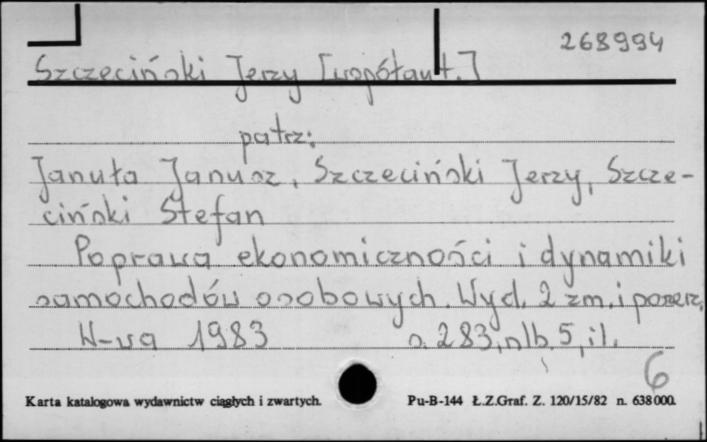 268994
Szczeciński Jerzy [współaut.]
patrz:
Januła Janusz, Szczeciński Jerzy, Szcze-
ciński Stefan
Poprawa ekonomiczności i dynamiki
samochodów osobowych. Wyd. 2 zm. i poszerz.
W-wa 1983 s. 283, nlb. 5, il.
6
Karta katalogowa wydawnictw ciągłych i zwartych. Pu-B-144 Ł.Z.Graf. Z. 120/15/82 n. 638000.